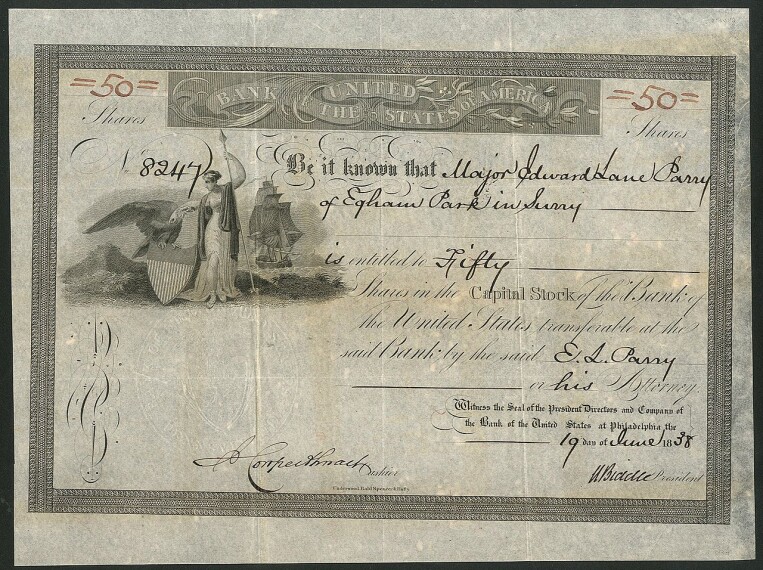 =50= BANK UNITED =50=
THE STATES OF AMERICA
Shares Shares
N. 8247 Be it known that Major Edward Lane Parry
of Egham Park in Surry
is entitled to Fifty
Shares in the Capital Stock of the Bank of
the United States transferable at the
said Bank by the said E. L. Parry
or his Attorney.
Witness the Seal of the President Directors and Company of
the Bank of the United States at Philadelphia the
19 day of June 1838
Cashier N Biddle President
Underwood Bald Spencer & Hufty